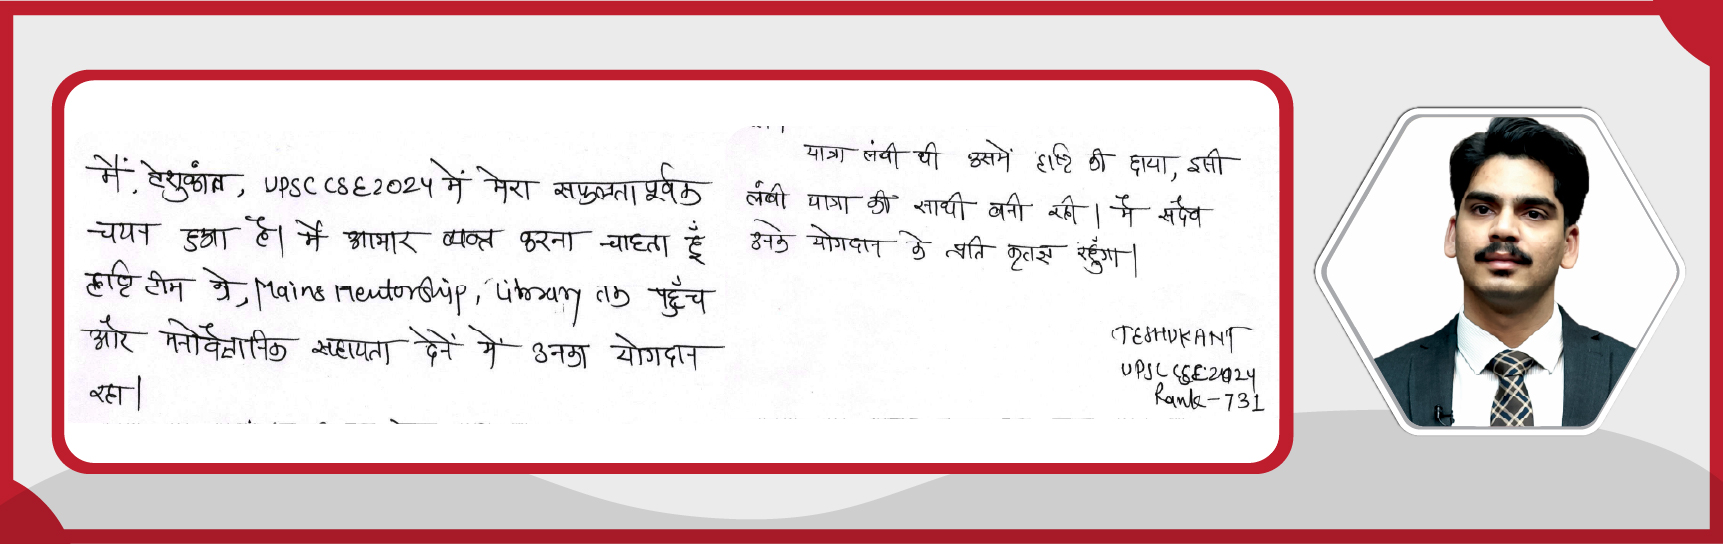 मैं, तेशुकांत, UPSC CSE 2024 में मेरा सफलता पूर्वक
चयन हुआ है। मैं आभार व्यक्त करना चाहता हूँ
दृष्टि टीम को, Mains Mentorship, Library तक पहुँच
और मनोवैज्ञानिक सहायता देनें में उनका योगदान
रहा।
यात्रा लंबी थी उसमें दृष्टि की छाया, इसी
लंबी यात्रा की साथी बनी रही। मैं सदैव
उनके योगदान के प्रति कृतज्ञ रहुँगा।
TESHUKANT
UPSC CSE 2024
Rank-731